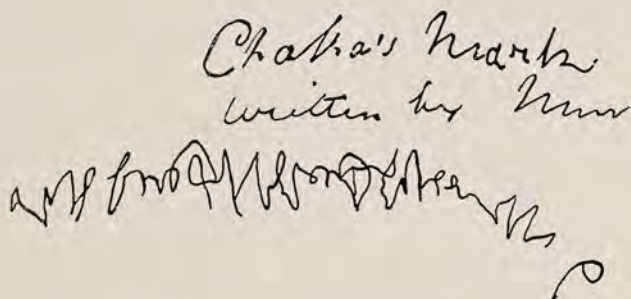 Chaka's Mark
written by him